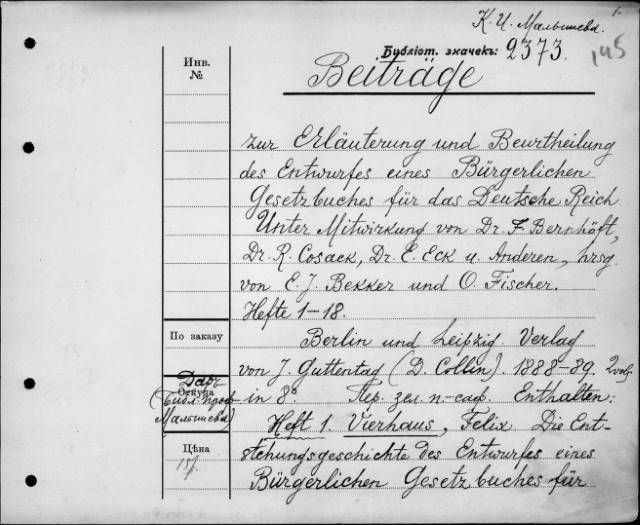 К. И. Малышева.
Библіот. значекъ: 2373.
145
Инв.
№
Beiträge
zur Erläuterung und Beurtheilung
des Entwurfes eines Bürgerlichen
Gesetzbuches für das Deutsche Reich
Unter Mitwirkung von Dr. F. Bernhöft,
Dr. R. Cosack, Dr. E. Eck u. Anderen, hrsg.
von E. J. Bekker und O. Fischer.
Hefte 1-18.
По заказу
Berlin und Leipzig. Verlag
von J. Guttentag (D. Collin). 1888-89. 2 vol.
Даръ
Откуда
(Библ. проф.
Малышева)
in 8° Пер. зел. п.-саф. Enthalten:
Heft 1. Vierhaus, Felix. Die Ent-
Цѣна
stehungsgeschichte des Entwurfes eines
Bürgerlichen Gesetzbuches für